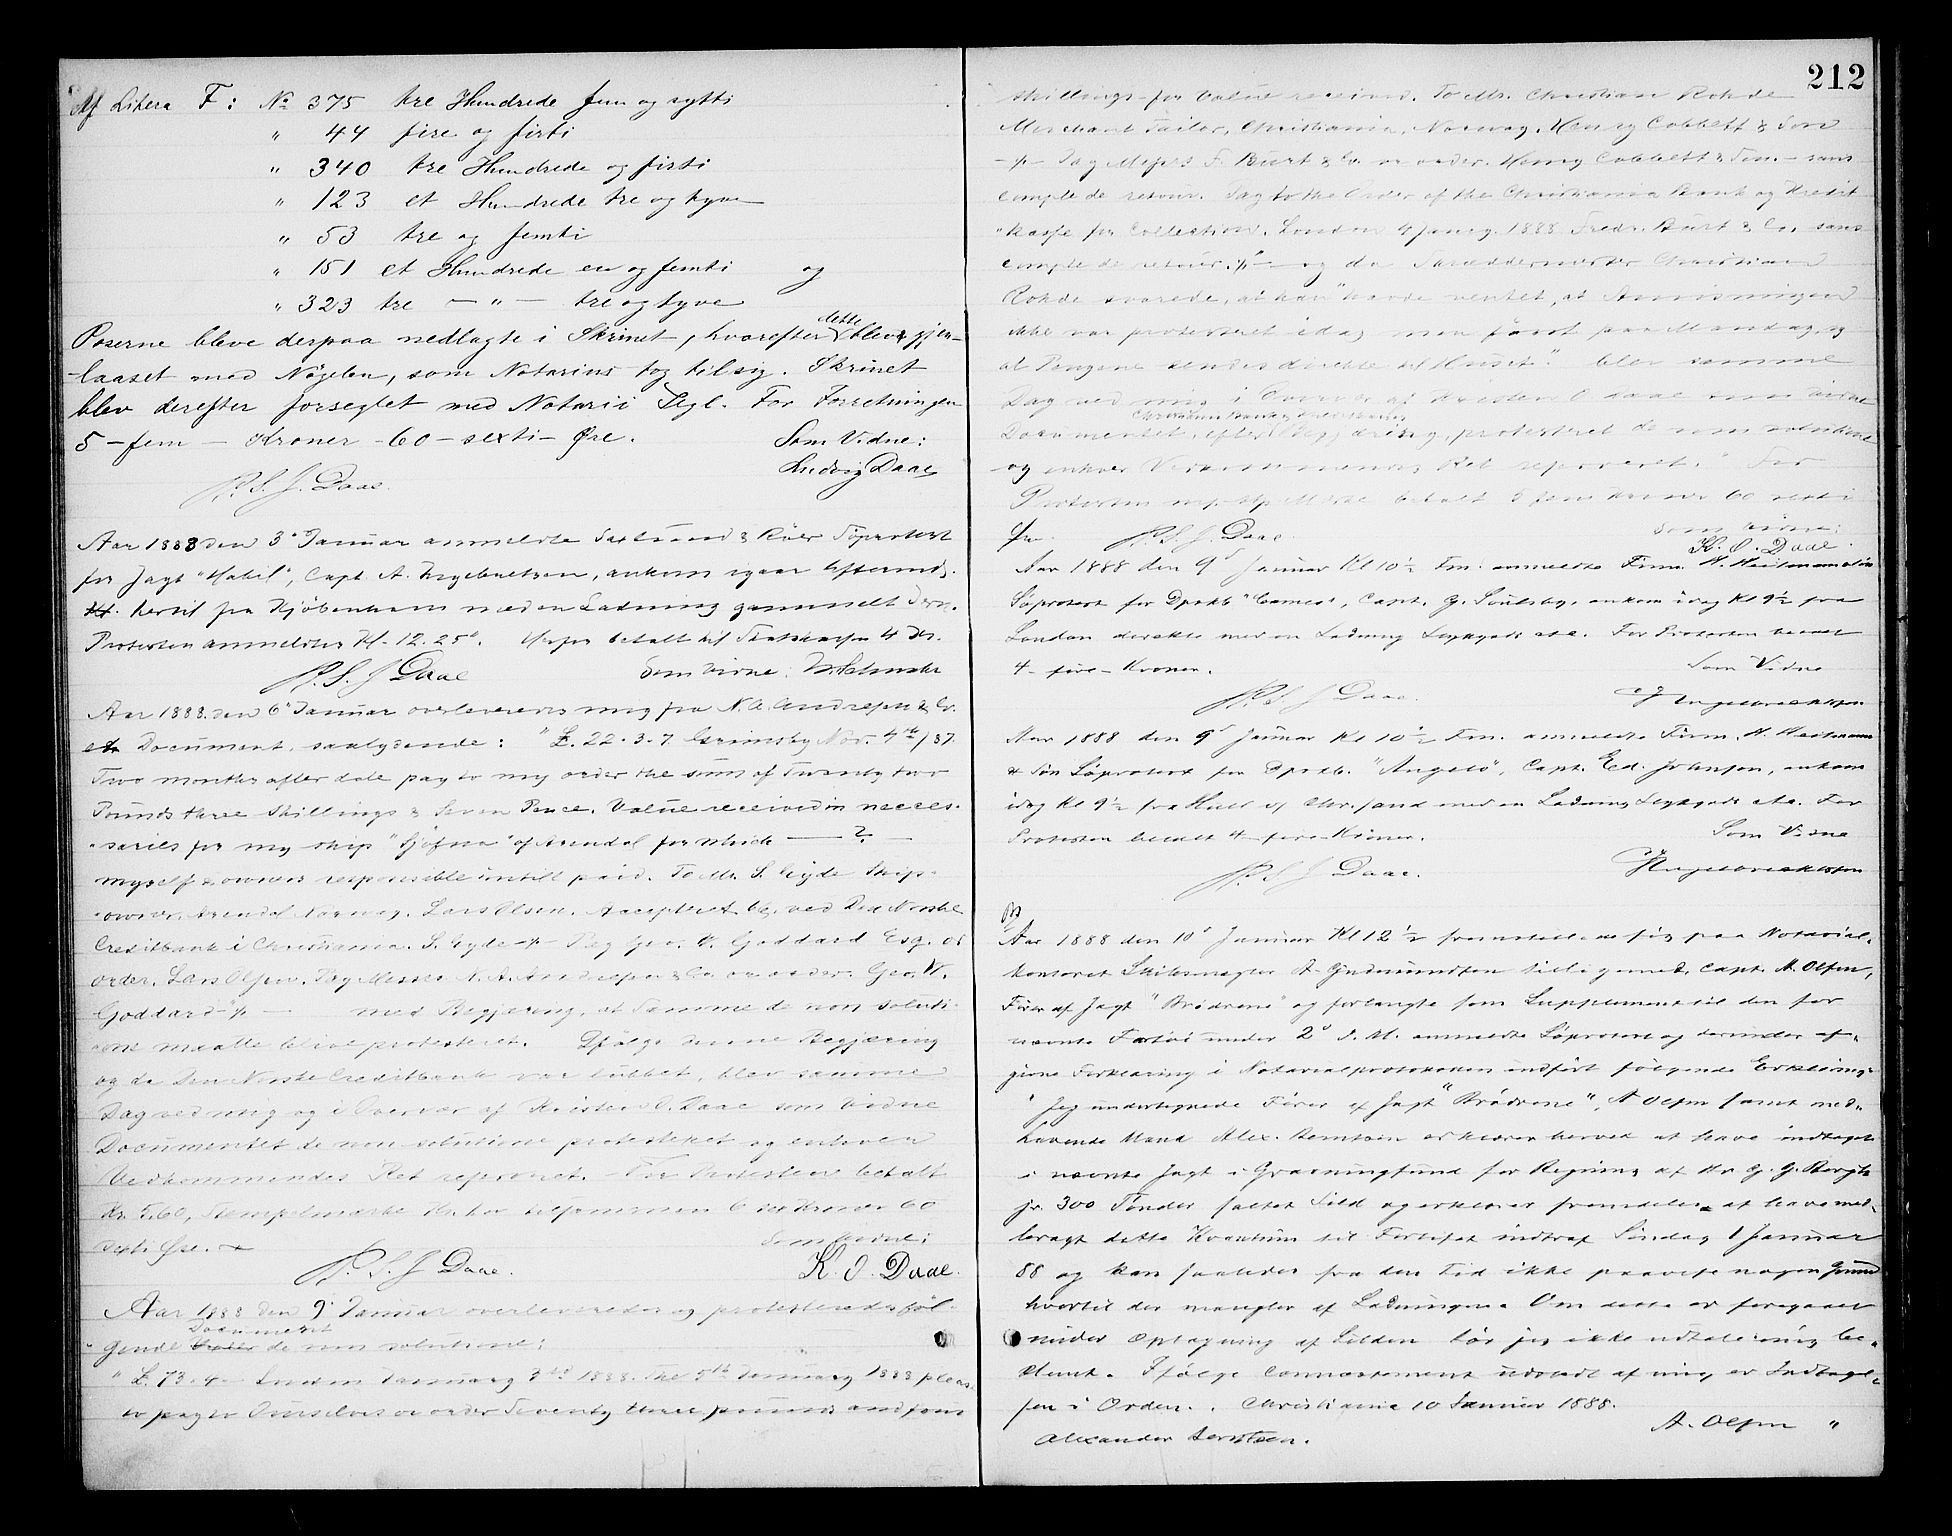 Af Litera F: No 375 tre Hundrede fem og sytti
" 44 fire og firti
" 340 tre Hundrede og firti
" 123 et Hundrede tre og tyve
" 53 tre og femti
" 151 et Hundrede en og femti og
" 323 tre — " — tre og tyve
Poserne bleve derpaa nedlagte i Skrinet, hvorefter dette blev gjen-
laaset med Nøglen, som Notarius tog til sig. Skrinet
blev derefter forseglet med Notarii Segl. For Forretningen
5 - fem - Kroner - 60 - sexti - Øre. Som Vidne:
P. S. J. Daae. Ludvig Daae
Aar 1888 den 3' Januar anmeldte & Søprotest
for Jagt "Habil", Capt. A. ankom igaar Efterm.
hertil fra Kjøbenhavn med en Ladning gammelt Jern.
Protesten anmeldtes Kl. 12.25'. Herfor betalt til Statskassen 4 Kr.
P. S. J Daae Som Vidne:
Aar 1888. den 6' Januar overleveredes mig fra N. A. Andresen & Co.
et Document, saalydende: "£. 22. 3. 7. Grimsby Nov. 4th /87.
Two months after date pay to my order the sum of Twenty two
Pounds three Skillings & Seven Pence. Value received in neces-
saries for my ship of Arendal for which — ? —
myself & owners responsible untill paid. To Mr. S. Gyde Skip-
owner, Arendal Norway. Lars Olsen. Accepteret bt. ved Den Norske
Creditbank i Christiania. S. Gyde -/- Pay Geo. W. Goddard Esq. or
order. Lars Olsen. Pay Messrs N. A. Andresen & Co. or order. Geo. W.
Goddard" -/- — med Begjæring, at Samme de non soluti-
one maatte blive protesteret. Ifølge denne Begjæring
og da Den Norske Creditbank var lukket, blev samme
Dag ved mig og i Overvær af Kristen O. Daae som Vidne
Documentet de non solutione protesteret og enhver
Vedkommendes Ret reserveret. For Protesten betalt
Kr. 5,60, Stempelmærke tilsammen 6 sex Kroner 60
sexti Øre. Som Vidne:
P. S. J Daae. K. O. Daae.
Aar 1888 den 9' Januar overleveredes og protesteredes føl-
gende Document de non solutione:
" £. 73. 4 - London January 3rd 1888. The 5th January 1888 please
to pay to Ourselves or order Seventy three pounds and four
212
skillings for Value received. To Mr. Christian Rohde
Merchant Tailor, Christiania, Norway. Henry Cobbett & Son
-/- Pay Messrs F. Burt & Co. or order. Henry Cobbett & Son. - sans
compte de retour. Pay to the Order of the Christiania Bank og Kredit
kasse for Collection. London 4 Jany. 1888 Fredr. Burt & Co, sans
compte de retour. -/- og da Skræddermester Christian
Rohde svarede, at han "havde ventet, at Anvisningen
ikke var protesteret idag, men først paa Mandag, og
at Pengene sendes direkte til Huset." blev samme
Dag ved mig i Overvær af Kristen O. Daae som Vidne
Documentet, efter Christiania Bank og Kreditkasses Begjæring, protesteret de non solutione
og enhver Vedkommendes Ret reserveret." For
Protesten betalt 6 Kroner 60 sexti
Øre. P. S. J. Daae. Som Vidne:
K. O. Daae.
Aar 1888 den 9' Januar Kl 10½ Fm. anmeldte Firma H. Heitmann & Søn
Søprotest for Dpskb. "Cameo", Capt. G. Soulsby, ankom idag Kl 9½ fra
London direkte med en Ladning Stykgods etc. For Protesten betalt
4 - fire - Kroner. Som Vidne
P. S. J Daae.
Aar 1888 den 9' Januar Kl 10½ Fm. anmeldte Firm. H. Heitmann
& Søn Søprotest for Dpskb. "Angelo", Capt. Ed. Johnson, ankom
idag Kl 9½ fra Hull og Chr.sand med en Ladning Stykgods etc. For
Protesten betalt 4 - fire - Kroner. Som Vidne
P. S. J Daae.
Aar 1888 den 10' Januar Kl 12½ fremstillede sig paa Notarial-
kontoret Skibsmægler A. Gudmundsen tilligemed Capt. A. Olsen,
Fører af Jagt "Brødrene" og forlangte som Supplement til den for
nævnte Fartøi under 2' d. M. anmeldte Søprotest og derunder af-
givne Forklaring i Notarialprotokollen indført følgende Erklæring:
"Jeg undertegnede Fører af Jagt "Brødrene", A Olsen samt ned-
havende Mand Alex. Berntsen erklærer herved at have indtaget
i nævnte Jagt i for Regning af Hr G. G. Bergh
jr. 300 Tønder saltet Sild og erklærer fremdeles at have med-
bragt dette Kvantum til indtraf Søndag 1 Januar
88 og kan saaledes fra den Tid ikke paavise nogen Grund
hvortil der mangler af Ladningen. Om dette er foregaaet
under Optagning af Silden tør jeg ikke udtale mig be-
stemt. Ifølge Connossement udstedt af mig er Indtagel-
sen i Orden. Christiania 10 Januar 1888.
A. Olsen "
Alexander Berntsen.